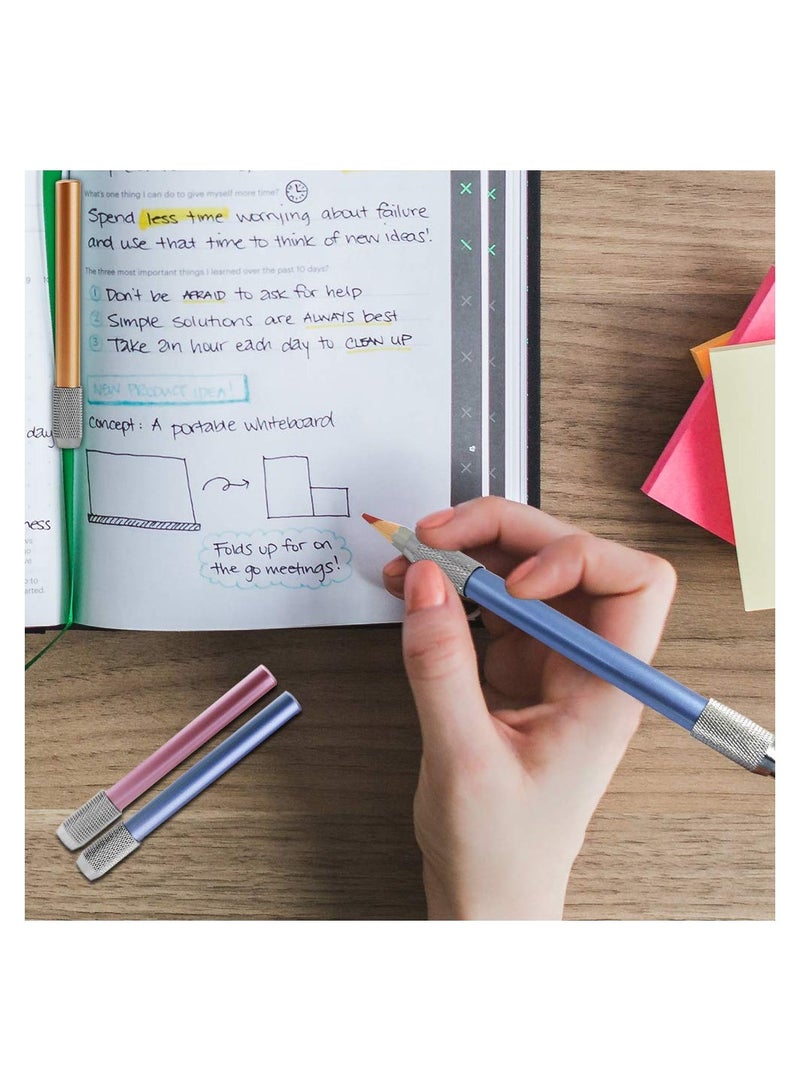 What's one thing I can do to give myself more time?
Spend less time worrying about failure
and use that time to think of new ideas!
The three most important things I learned over the past 10 days?
1 Don't be AFRAID to ask for help
2 Simple solutions are ALWAYS best
3 Take an hour each day to CLEAN UP
NEW PRODUCT IDEA!
Concept: A portable whiteboard
Folds up for on
the go meetings!
9
day
ness
to
arted.